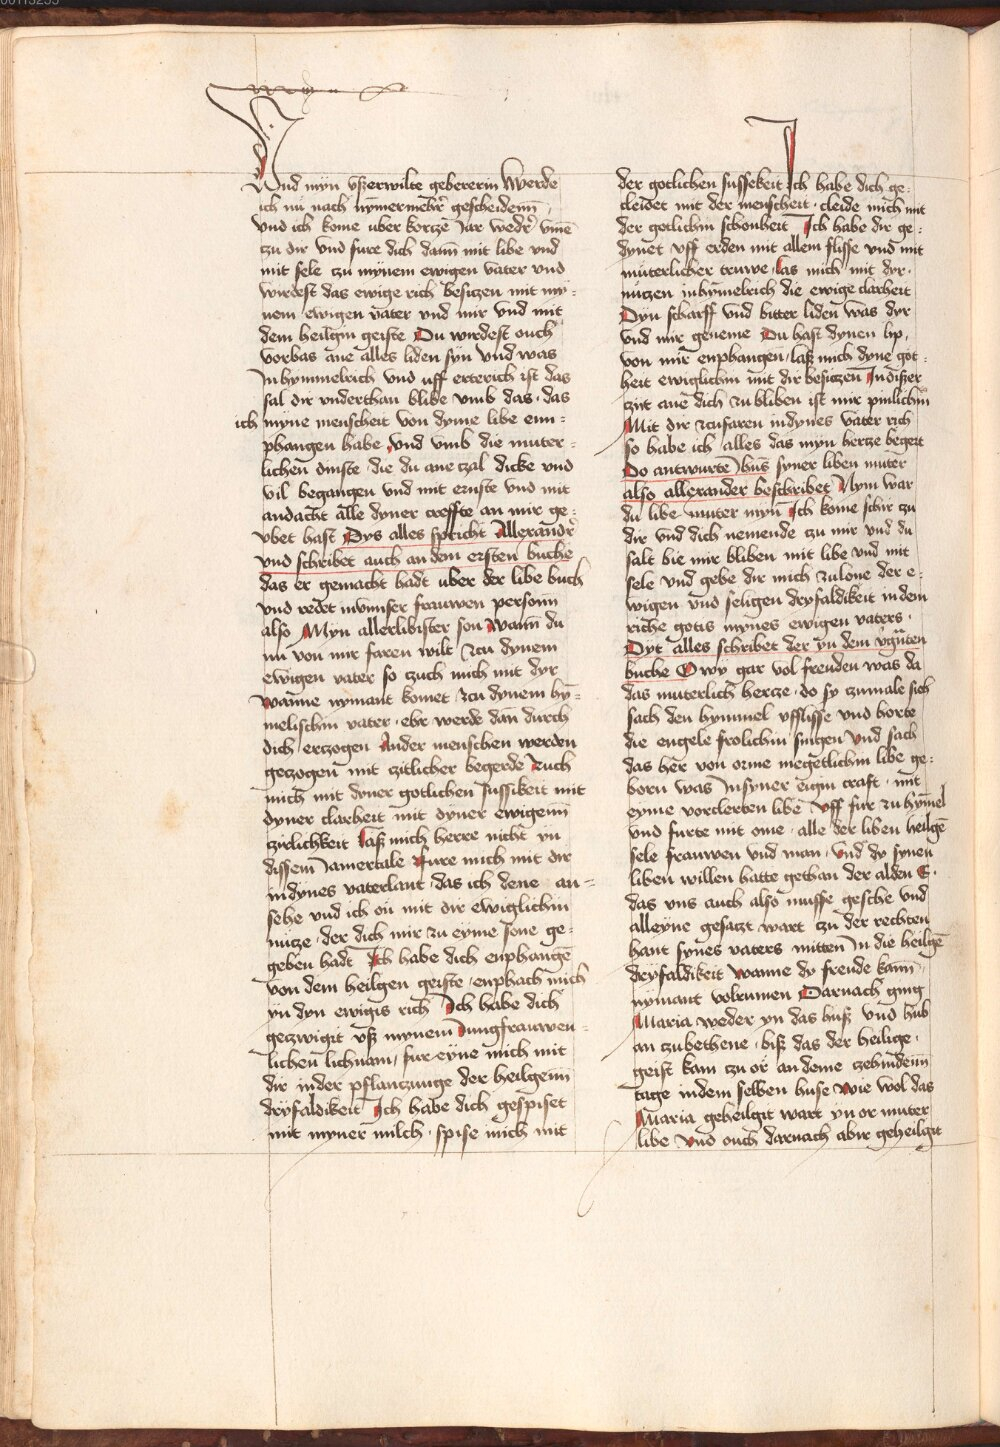 Und myn vßerwilte gebererin Werde
ich nu nach nymermehr gescheidenn
und ich kome uber kortze Jar wedr vme
zu dir vnd fure dich dann mit libe vnd
mit sele zu mynem ewigen vater vnd
wirdest das ewige rich besitzen mit my-
nem ewigen vater vnd mir vnd mit
dem heilgin geiste Du wirdest ouch
vorbas ane alles liden syn vnd was
In hymmelrich vnd uff erterich ist das
sal dir vnderthan blibe vmb das, das
ich myne menscheit von dyme libe em-
phangen habe vnd vmb die muter-
lichen dinste die du ane tzal dicke vnd
vil begangen vnd mit ernste vnd mit
andacht alle dyner creffte an mir ge-
vbet hast Dys alles spricht Allexandr
vnd schribet auch an dem ersten buche
das er gemacht hadt uber der libe buch
vnd redet in vnnser frauwen personn
also Myn allerlibister son Wann du
nu von mir faren wilt tzu dynem
ewigen vater so zuch mich mit dyr
wanne nymant komet tzu dynem hy-
melischin vater, ehr werde dan durch
dich ertzogen Ander menschen werden
getzogen mit zitlicher begerde zuch
mich mit dyner gotlichen sussikeit mit
dyner clarheit mit dyner ewigenn
zirlichkeit laß mich herre nicht yn
dissem Jamertale fure mich mit dir
in dynes vaterlant, das ich dene an-
sehe vnd ich on mit dir ewiglichin
nutze, der dich mir zu eyme sone ge-
geben hadt Ich habe dich enphange
von dem heilgen geiste, enphach mich
yn dyn ewigis rich Ich habe dich
getzwigit vß mynem Jungfrauwen-
lichen lichnam, fur eyne mich mit
dir in der pflantzunge der heilgenn
dryfaldikeit Ich habe dich gespiset
mit myner milch, spise mich mit
der gotlichen sussekeit Ich habe dich ge-
cleidet mit der menscheit, cleide mich mit
der gotlichin schonheit Ich habe dir ge-
dynet uff erden mit allem flisse vnd mit
muterlicher truwe, las mich mit dyr
nutzen in hymelrich die ewige clarheit
Dyn scharff vnd bitter liden was dyr
vnd mir geneme Du hast dynen lip,
von mir enphangen, laß mich dyne got-
heit ewiglichin mit dir besitzen In dißer
zyt ane dich zu bliben ist mir pinlichin
Mit dir tzufaren in dynes vater rich
so habe ich alles das myn hertze begert
Do antwurte Jhus syner liben muter
also allexander beschribet Nym war
du libe muter myn Ich kome schir zu
dir vnd dich nemende zu mir vnd du
salt bie mir bliben mit libe vnd mit
sele vnd gebe dir mich zu lone der e-
wigen vnd seligen dryfaldikeit in dem
riche gotis mynes ewigen vaters
Dyt alles schribet der yn dem
buche O wy gar vol freuden was da
das muterlich hertze, do sy zumale sich
sach den hymmel uff lisse vnd horte
die engele frolichin singen vnd sach
das her von orme megetlichin libe ge-
born was In syner eigin craft, mit
eyme vorclerten libe uff fur zu hymel
vnd furte mit ome, alle der liben heilge
sele frauwen vnd man, vnd dy synen
liben willen hatte gethan der alden E.
das vns auch also musse gesche vnd
alleyne gesatzt wart zu der rechten
hant synes vaters mitten In die heilge
dryfaldikeit wanne dy freude kann
nymant volrumen Darnach ging
Maria weder yn das huß vnd hub
an zu bethene, biß das der heilige
geist kam zu or an deme zehindenn
tage in dem selben huse wie wol das
Maria geheilgit wart yn or muter
libe vnd ouch darnach abir geheilgit